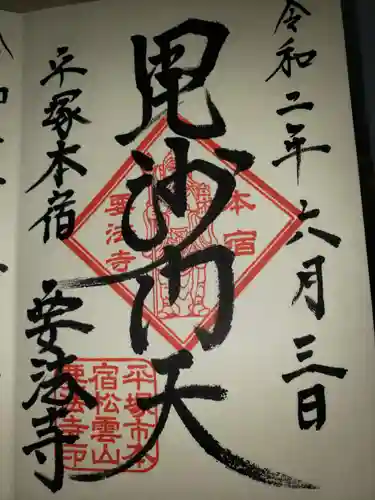 令和二年六月三日
毘沙門天
本宿
要法寺
平塚本宿
要法寺
平塚市本
宿松雲山
要法寺印